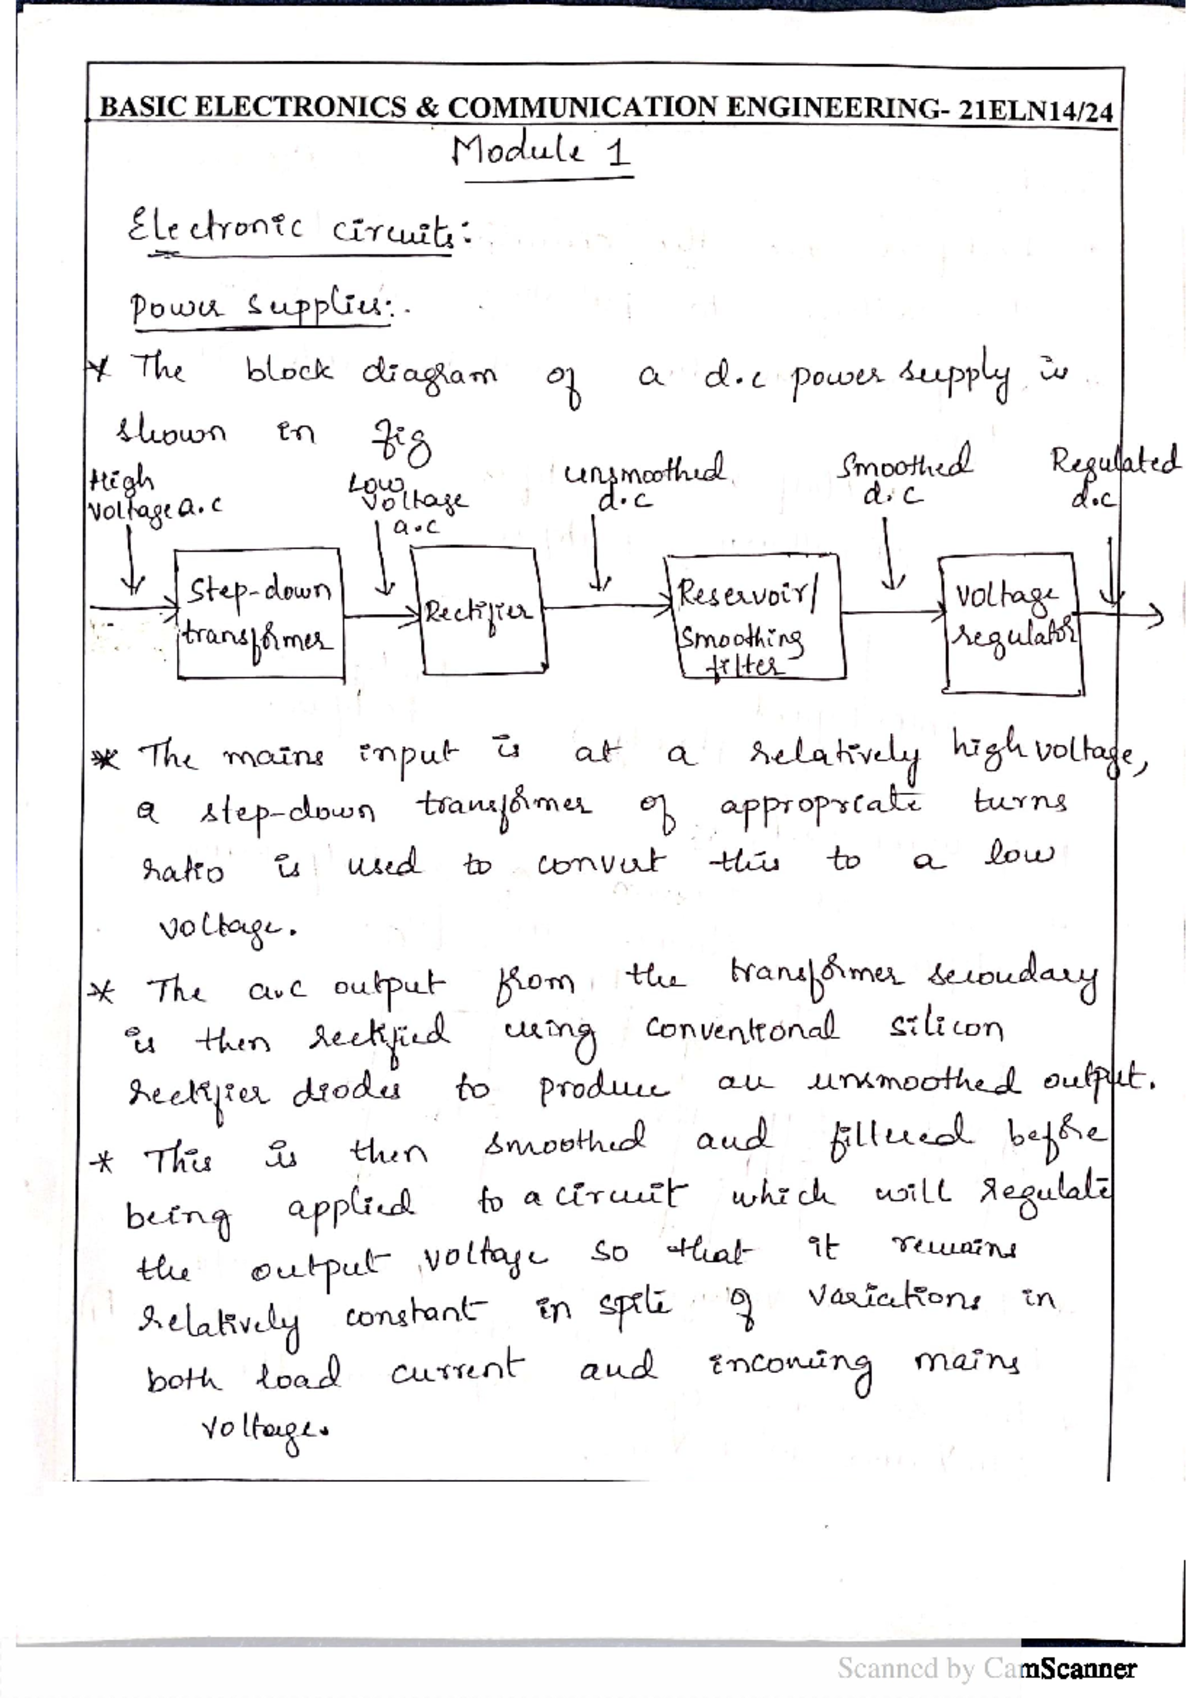 BASIC ELECTRONICS & COMMUNICATION ENGINEERING- 21ELN14/24
Module 1
Electronic circuits:
Power supplies:.
* The block diagram of a d.c power supply is
shown in fig
High
voltage a.c
Low
voltage
a.c
unsmoothed
d.c
Smoothed
d.c
Regulated
d.c
Step-down
transformer
Rectifier
Reservoir/
Smoothing
filter
Voltage
regulator
* The mains input is at a relatively high voltage,
a step-down transformer of appropriate turns
ratio is used to convert this to a low
voltage.
* The a.c output from the transformer secondary
is then rectified using conventional silicon
rectifier diodes to produce an unsmoothed output.
* This is then smoothed and filtered before
being applied to a circuit which will regulate
the output voltage so that it remains
relatively constant in spite of variations in
both load current and incoming mains
voltage.
Scanned by CamScanner